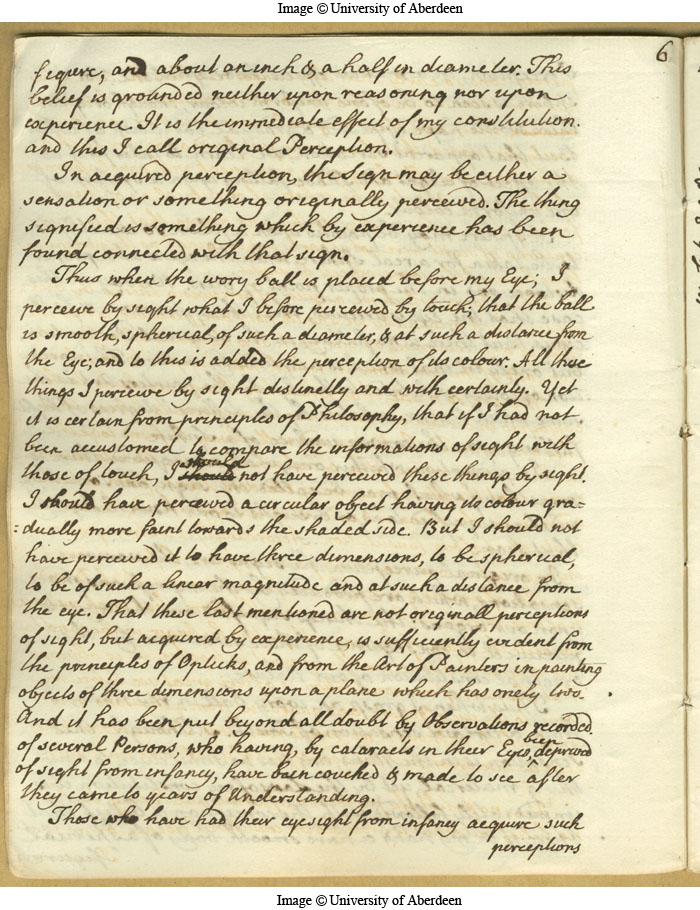 Image © University of Aberdeen
6
figure, and about an inch & a half in diameter. This
belief is grounded neither upon reasoning nor upon
experience. It is the immediate effect of my constitution.
and this I call original Perception.
In acquired perception, the Sign may be either a
sensation or something originally perceived. The thing
signified is something which by experience has been
found connected with that sign.
Thus when the ivory ball is placed before my Eye; I
perceive by sight what I before perceived by touch, that the ball
is smooth, spherical, of such a diameter, & at such a distance from
the Eye; and to this is added the perception of its colour. All these
things I perceive by sight distinctly and with certainty. Yet
it is certain from principles of Philosophy, that if I had not
been accustomed to compare the informations of sight with
should
those of touch, I should not have perceived these things by sight.
I should have perceived a circular object having its colour gra=
=dually more faint towards the shaded side. But I should not
have perceived it to have three dimensions, to be spherical,
to be of such a linear magnitude and at such a distance from
the eye. That these last mentioned are not originall perceptions
of sight, but acquired by experience, is sufficiently evident from
the principles of Opticks, and from the Art of Painters in painting
objects of three dimensions upon a plane which has onely two.
And it has been put beyond all doubt by Observations recorded
of several Persons, who having, by cataracts in their Eyes, been deprived
of sight from infancy, have been couched & made to see after
they came to years of Understanding.
Those who have had their eyesight from infancy acquire such
perceptions
Image © University of Aberdeen